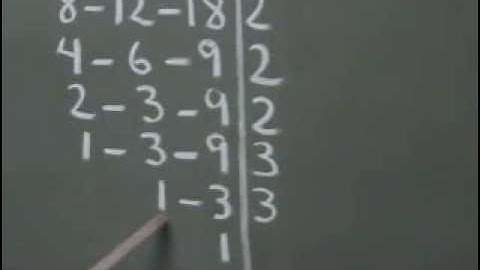 8-12-18|2
4-6-9|2
2-3-9|2
1-3-9|3
1-3|3
1|